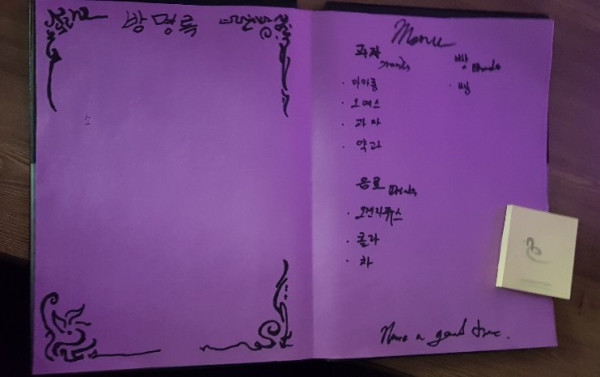 방명록
Menu
과자
빵
· 마카롱
· 빵
· 오예스
· 과자
· 약과
음료
· 오렌지쥬스
· 콜라
· 차
Have a good time.